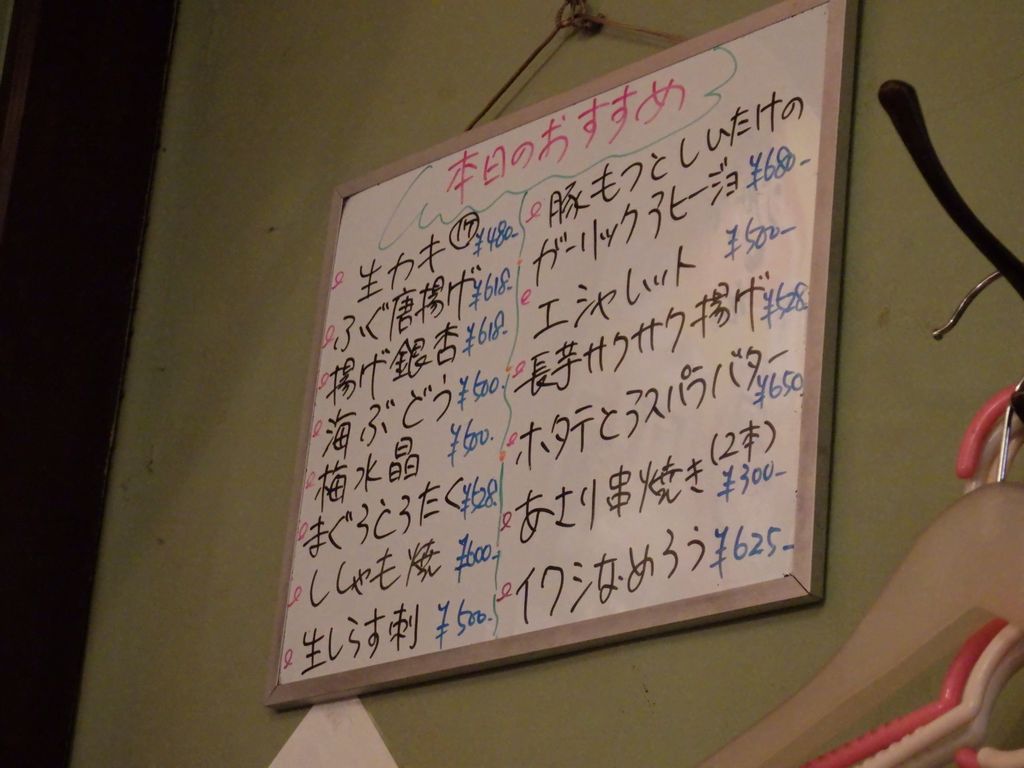 本日のおすすめ
生カキ ¥480-
ふぐ唐揚げ ¥618-
揚げ銀杏 ¥618-
海ぶどう ¥500-
梅水晶 ¥500-
まぐろとろたく ¥528-
ししゃも焼 ¥600-
生しらす刺 ¥500-
豚もつとしいたけの
ガーリックアヒージョ ¥680-
エシャレット ¥500-
長芋サクサク揚げ ¥528
ホタテとアスパラバター ¥650
あさり串焼き(2本) ¥300-
イワシなめろう ¥625-